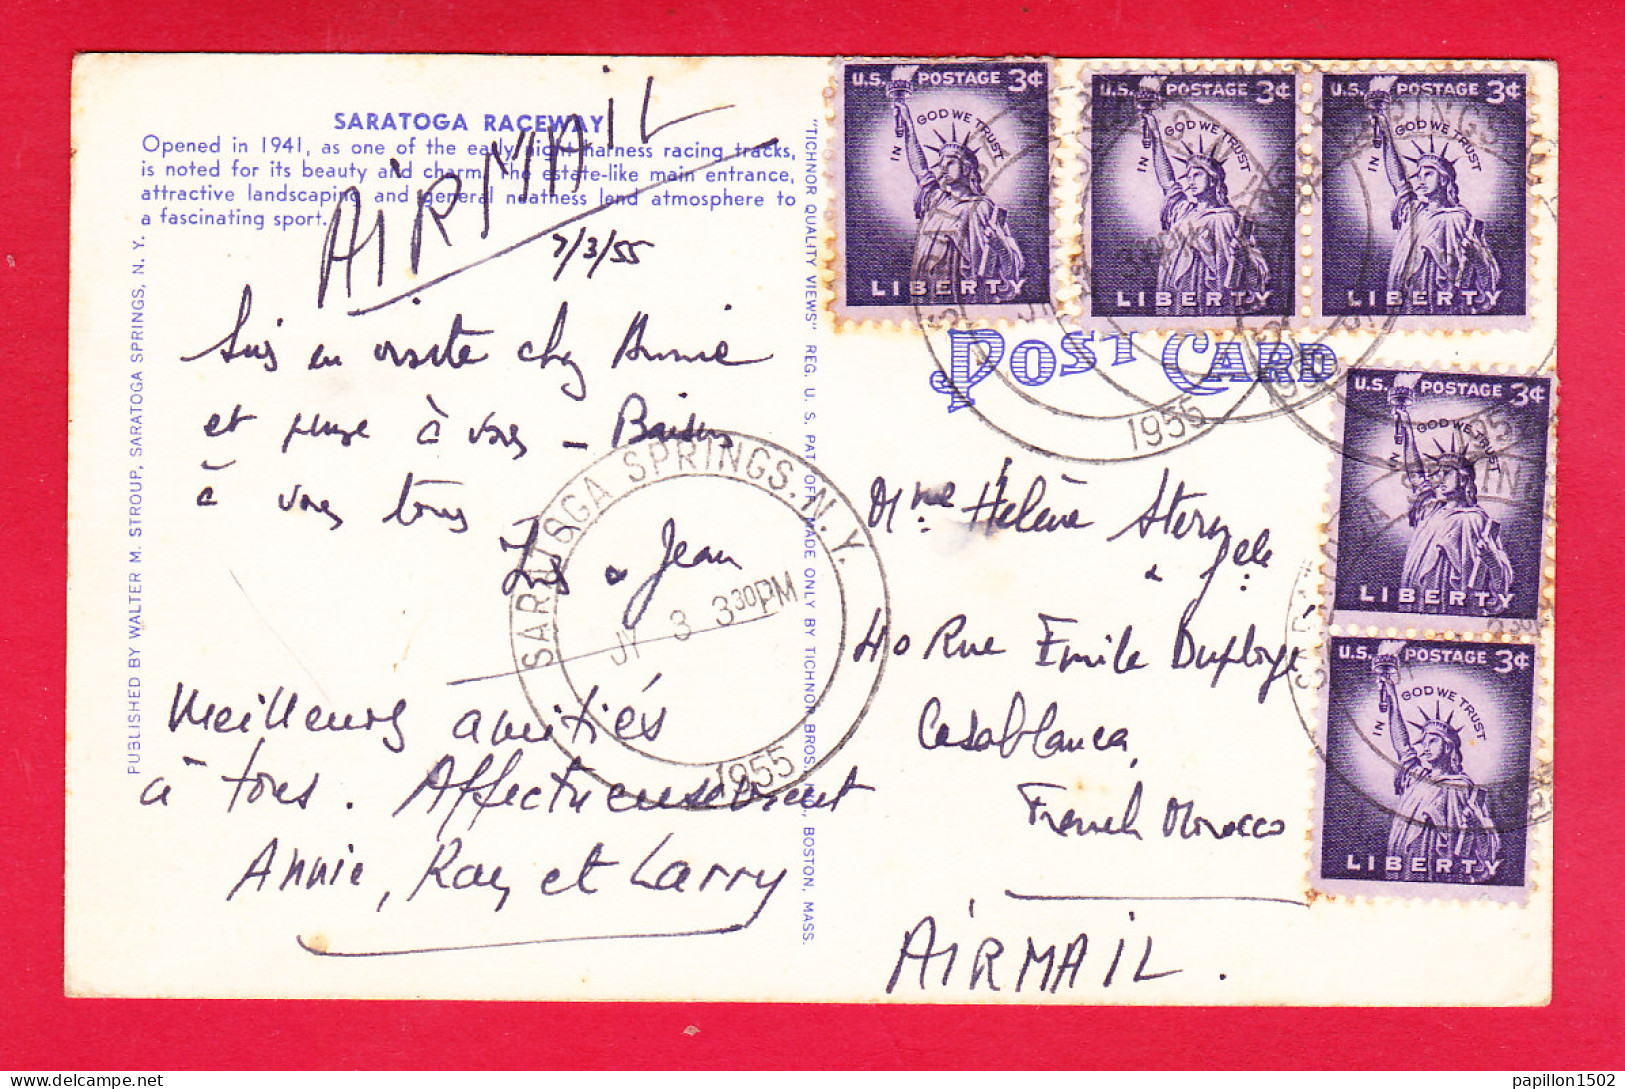 SARATOGA RACEWAY
Opened in 1941, as one of the early night harness racing tracks,
is noted for its beauty and charm. The estate-like main entrance,
attractive landscaping and general neatness lend atmosphere to
a fascinating sport.
AIRMAIL
7/3/55
Suis en visite chez Annie
et pense à vous - Baisers
à vous tous
Jean
Meilleures amitiés
à tous. Affectueusement
Annie, Ray et Larry
PUBLISHED BY WALTER M. STROUP, SARATOGA SPRINGS, N. Y.
"TICHNOR QUALITY VIEWS" REG. U. S. PAT. OFF. MADE ONLY BY TICHNOR BROS., INC., BOSTON, MASS.
SARATOGA SPRINGS. N. Y.
JY 3 330PM
1955
U.S. POSTAGE 3¢
IN GOD WE TRUST
LIBERTY
U.S. POSTAGE 3¢
IN GOD WE TRUST
LIBERTY
U.S. POSTAGE 3¢
IN GOD WE TRUST
LIBERTY
POST CARD
1955
U.S. POSTAGE 3¢
IN GOD WE TRUST
LIBERTY
U.S. POSTAGE 3¢
IN GOD WE TRUST
LIBERTY
Mme Hélène Stern
40 Rue Emile Duployé
Casablanca,
French Morocco
AIRMAIL.
papillon1502